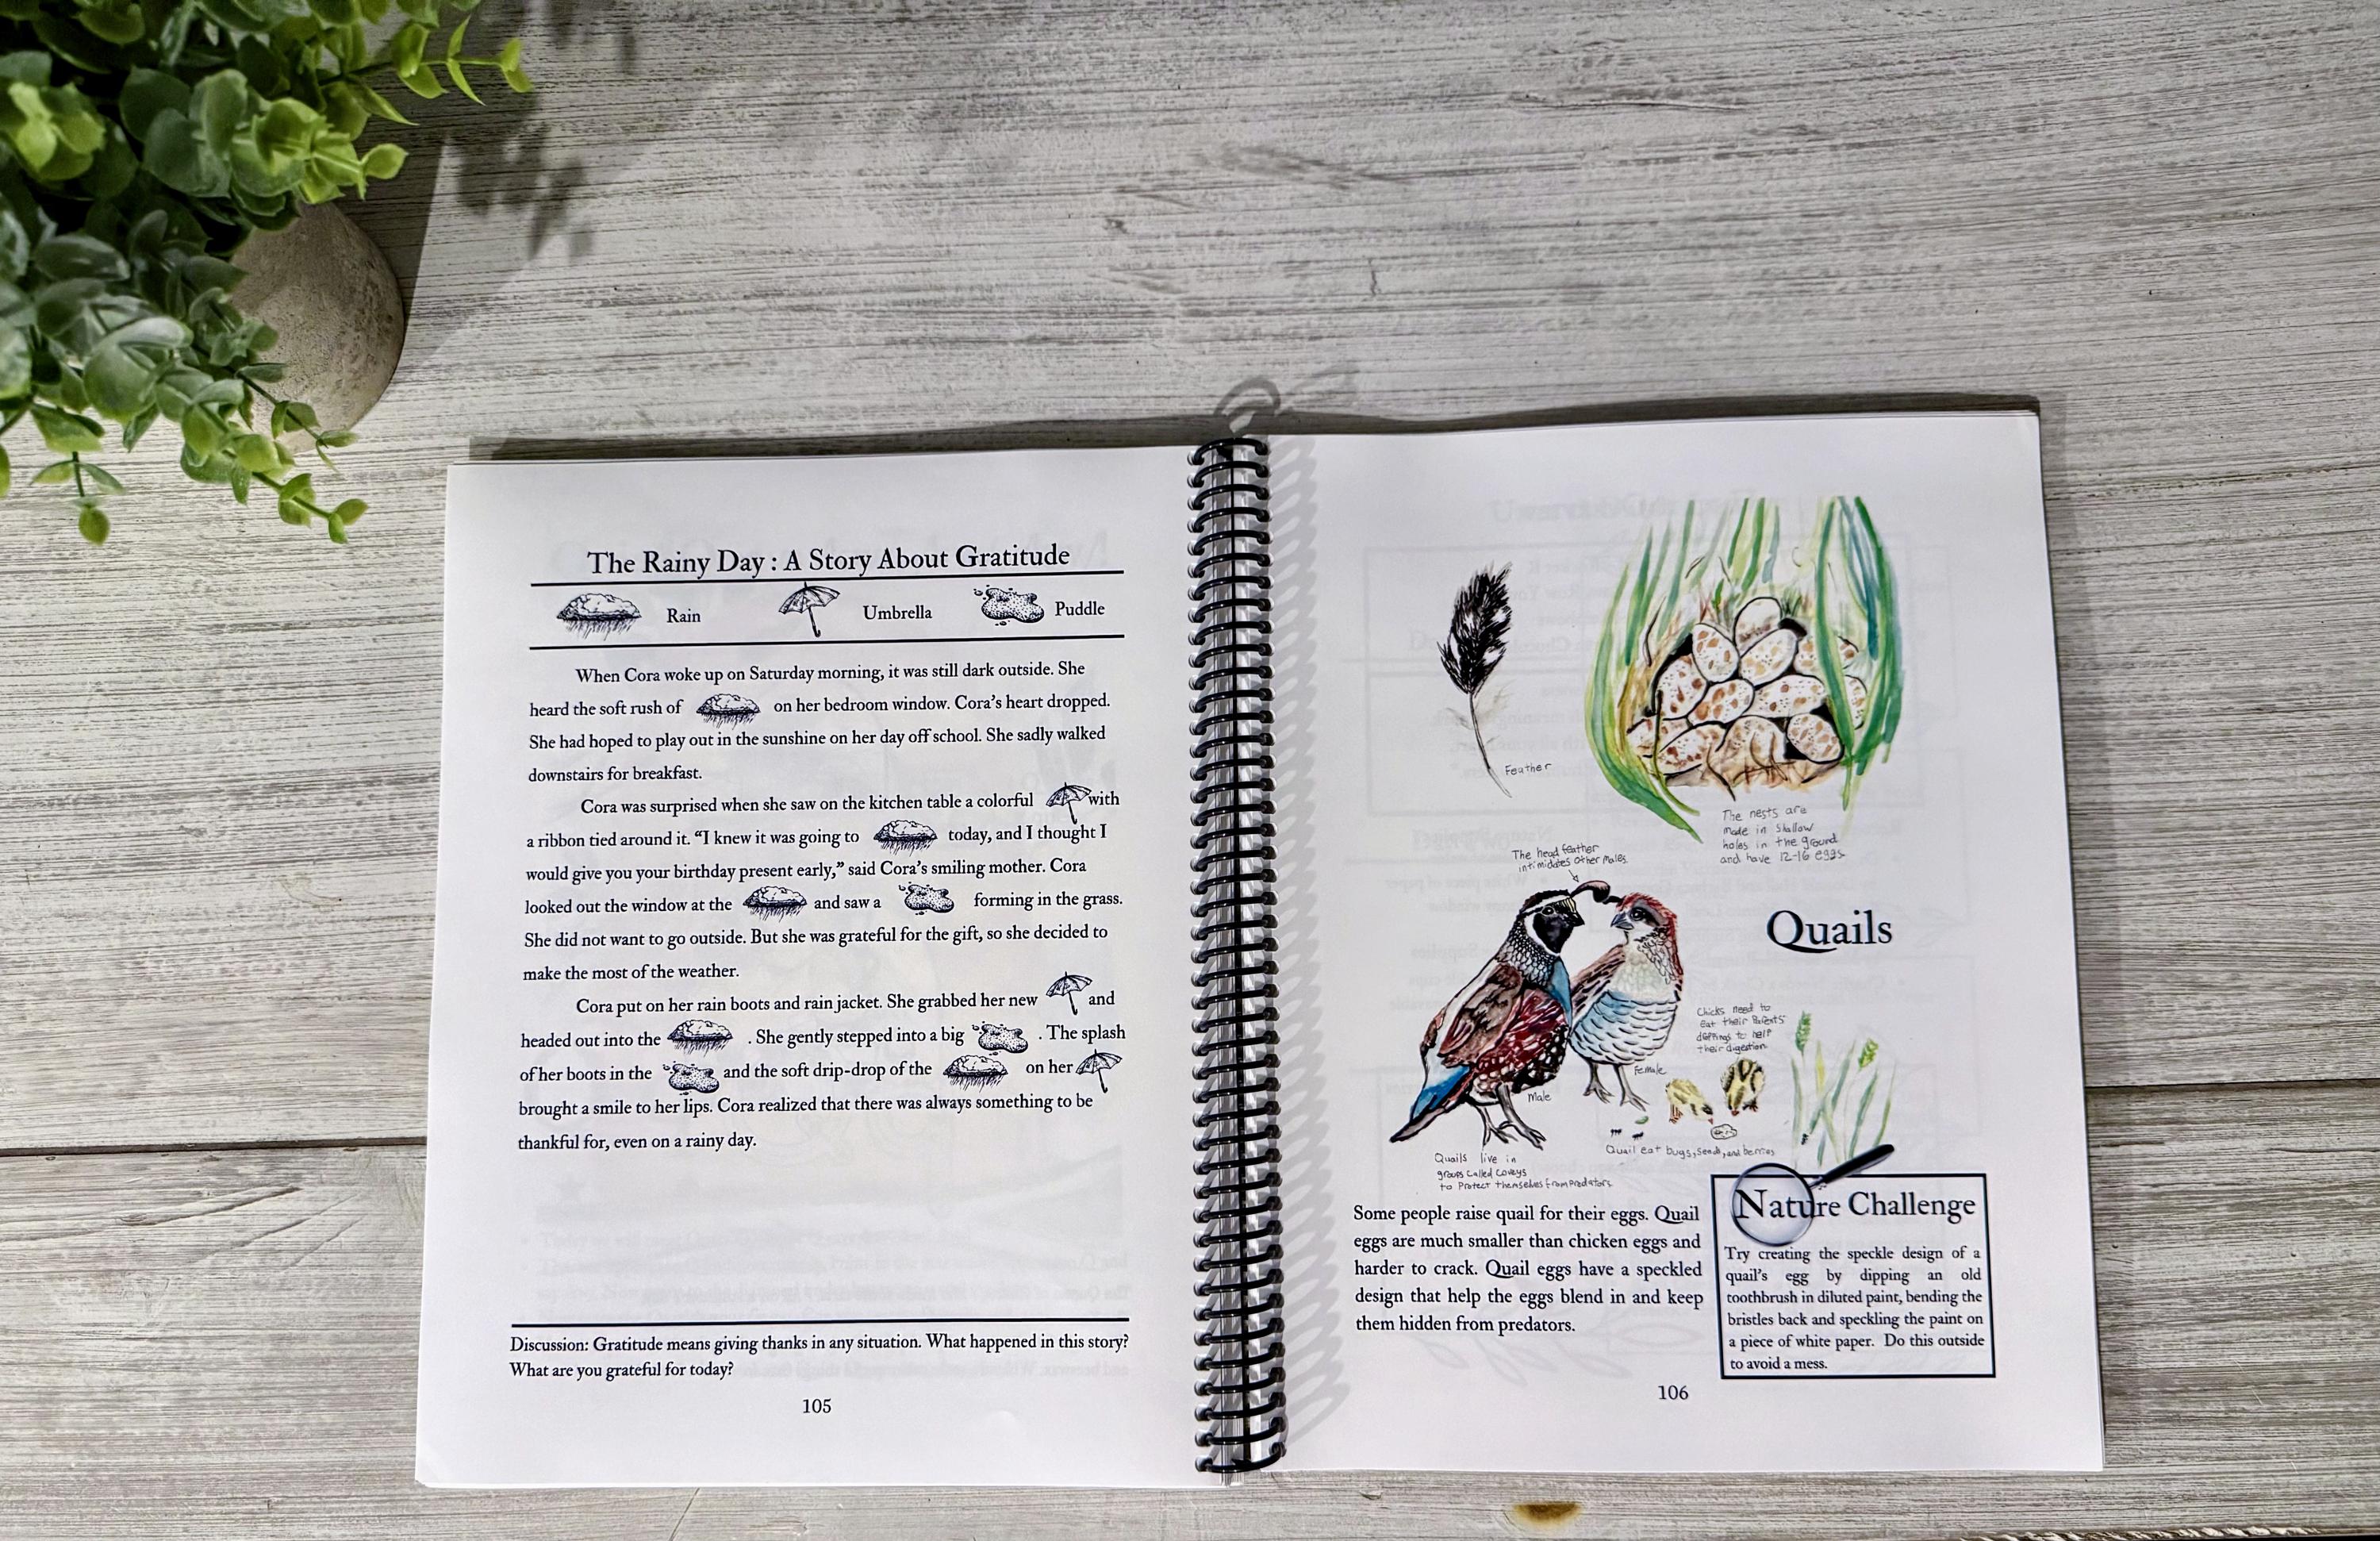 The Rainy Day : A Story About Gratitude
Rain Umbrella Puddle
When Cora woke up on Saturday morning, it was still dark outside. She
heard the soft rush of on her bedroom window. Cora's heart dropped.
She had hoped to play out in the sunshine on her day off school. She sadly walked
downstairs for breakfast.
Cora was surprised when she saw on the kitchen table a colorful with
a ribbon tied around it. “I knew it was going to today, and I thought I
would give you your birthday present early,” said Cora's smiling mother. Cora
looked out the window at the and saw a forming in the grass.
She did not want to go outside. But she was grateful for the gift, so she decided to
make the most of the weather.
Cora put on her rain boots and rain jacket. She grabbed her new and
headed out into the . She gently stepped into a big . The splash
of her boots in the and the soft drip-drop of the on her
brought a smile to her lips. Cora realized that there was always something to be
thankful for, even on a rainy day.
Discussion: Gratitude means giving thanks in any situation. What happened in this story?
What are you grateful for today?
105
Feather
The nests are
made in shallow
holes in the ground
and have 12-16 eggs.
The head feather
intimidates other males.
Quails
Chicks need to
eat their parents'
to help
their digestion.
Female
Male
Quail eat bugs, seeds, and berries
Quails live in
groups called coveys
to protect themselves from predators.
Some people raise quail for their eggs. Quail
eggs are much smaller than chicken eggs and
harder to crack. Quail eggs have a speckled
design that help the eggs blend in and keep
them hidden from predators.
Nature Challenge
Try creating the speckle design of a
quail's egg by dipping an old
toothbrush in diluted paint, bending the
bristles back and speckling the paint on
a piece of white paper. Do this outside
to avoid a mess.
106